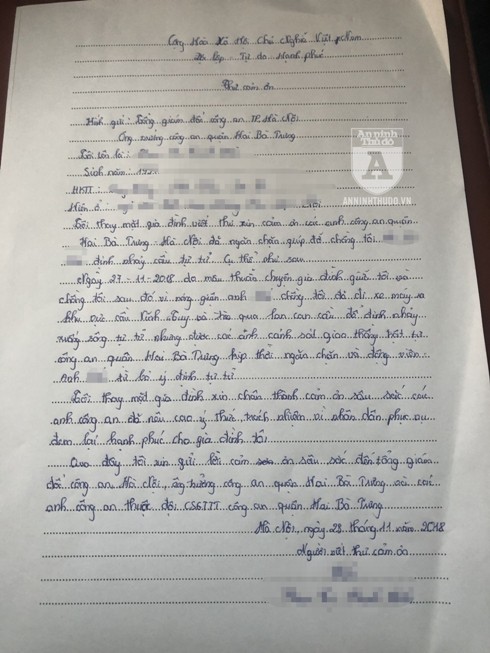 Cộng Hòa Xã Hội Chủ Nghĩa Việt Nam
Độc lập - Tự do Hạnh phúc
Thư cảm ơn
Kính gửi: Tổng giám đốc công an TP. Hà Nội
Ông trưởng công an quận Hai Bà Trưng
Tôi tên là:
Sinh năm:
HKTT:
Hiện ở:
Tôi thay mặt gia đình viết thư xin cảm ơn các anh công an quận
Hai Bà Trưng Hà Nội đã ngăn chặn giúp đỡ chồng tôi
định nhảy cầu tự tử. Cụ thể như sau
Ngày 27-11-2018 do mâu thuẫn chuyện gia đình giữa tôi và
chồng tôi sau đó vì nóng giận anh chồng tôi đã đi xe máy ra
khu vực cầu Vĩnh Tuy và trèo qua lan can cầu để định nhảy
xuống sông tự tử nhưng được các anh cảnh sát giao thông trật tự
công an quận Hai Bà Trưng kịp thời ngăn chặn và động viên
Anh từ bỏ ý định tự tử
Tôi thay mặt gia đình xin chân thành cảm ơn sâu sắc các
anh công an đã nêu cao ý thức trách nhiệm vì nhân dân phục vụ
đem lại hạnh phúc cho gia đình tôi
Qua đây tôi xin gửi lời cảm ơn sâu sắc đến tổng giám
đốc công an Hà Nội, ông trưởng công an quận Hai Bà Trưng và các
anh công an thuộc đội CSGTTT công an quận Hai Bà Trưng
Hà Nội, ngày 28 tháng 11 năm 2018
Người viết thư cảm ơn
An ninh
Thủ đô
A
ANNINHTHUDO.VN